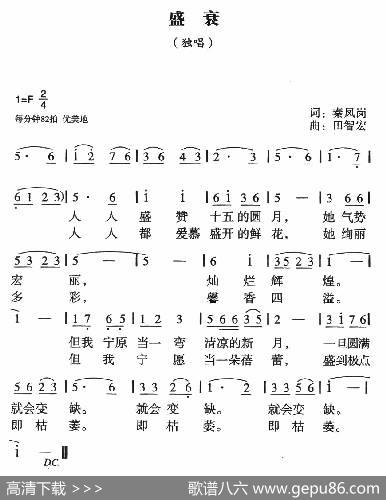 盛 衰
（独唱）
1=F 2/4
词：秦凤岗
每分钟82拍 优美地
曲：田智宏
5· 6 | i 2 7 6 | 3 6 4 3 | 5· 6 |
6 1 2 3 | 5· 6 | i i | 6 1 2 3 | i - | 5· 6
人 人 盛 赞 十五的圆 月， 她气势
人 人 都 爱慕 盛开的鲜 花， 她绚丽
5 3 2 3 | 5 - | 5 - | 6 i | 3 5 2 3
宏 丽， 灿 烂 辉 煌。
多 彩， 馨 香 四 溢。
i - | 1 7 6 5 | 1 2 3 | 5 6 6 3 5 | 2 - | 3 i 7 6
但我 宁愿 当一 弯 清凉的新 月， 一旦圆满
但我 宁 愿 当一朵蓓 蕾， 盛到极点
5 6 2 3 | i - | 3 6 4 3 | 2 - | 5 6 2 3 | i -
就会变 缺。 就会变 缺。 就会变 缺。
即枯 萎。 即枯 萎。 即枯 萎。
i - ‖
DC.
高清下载 >>>
歌谱八六 www.gepu86.com